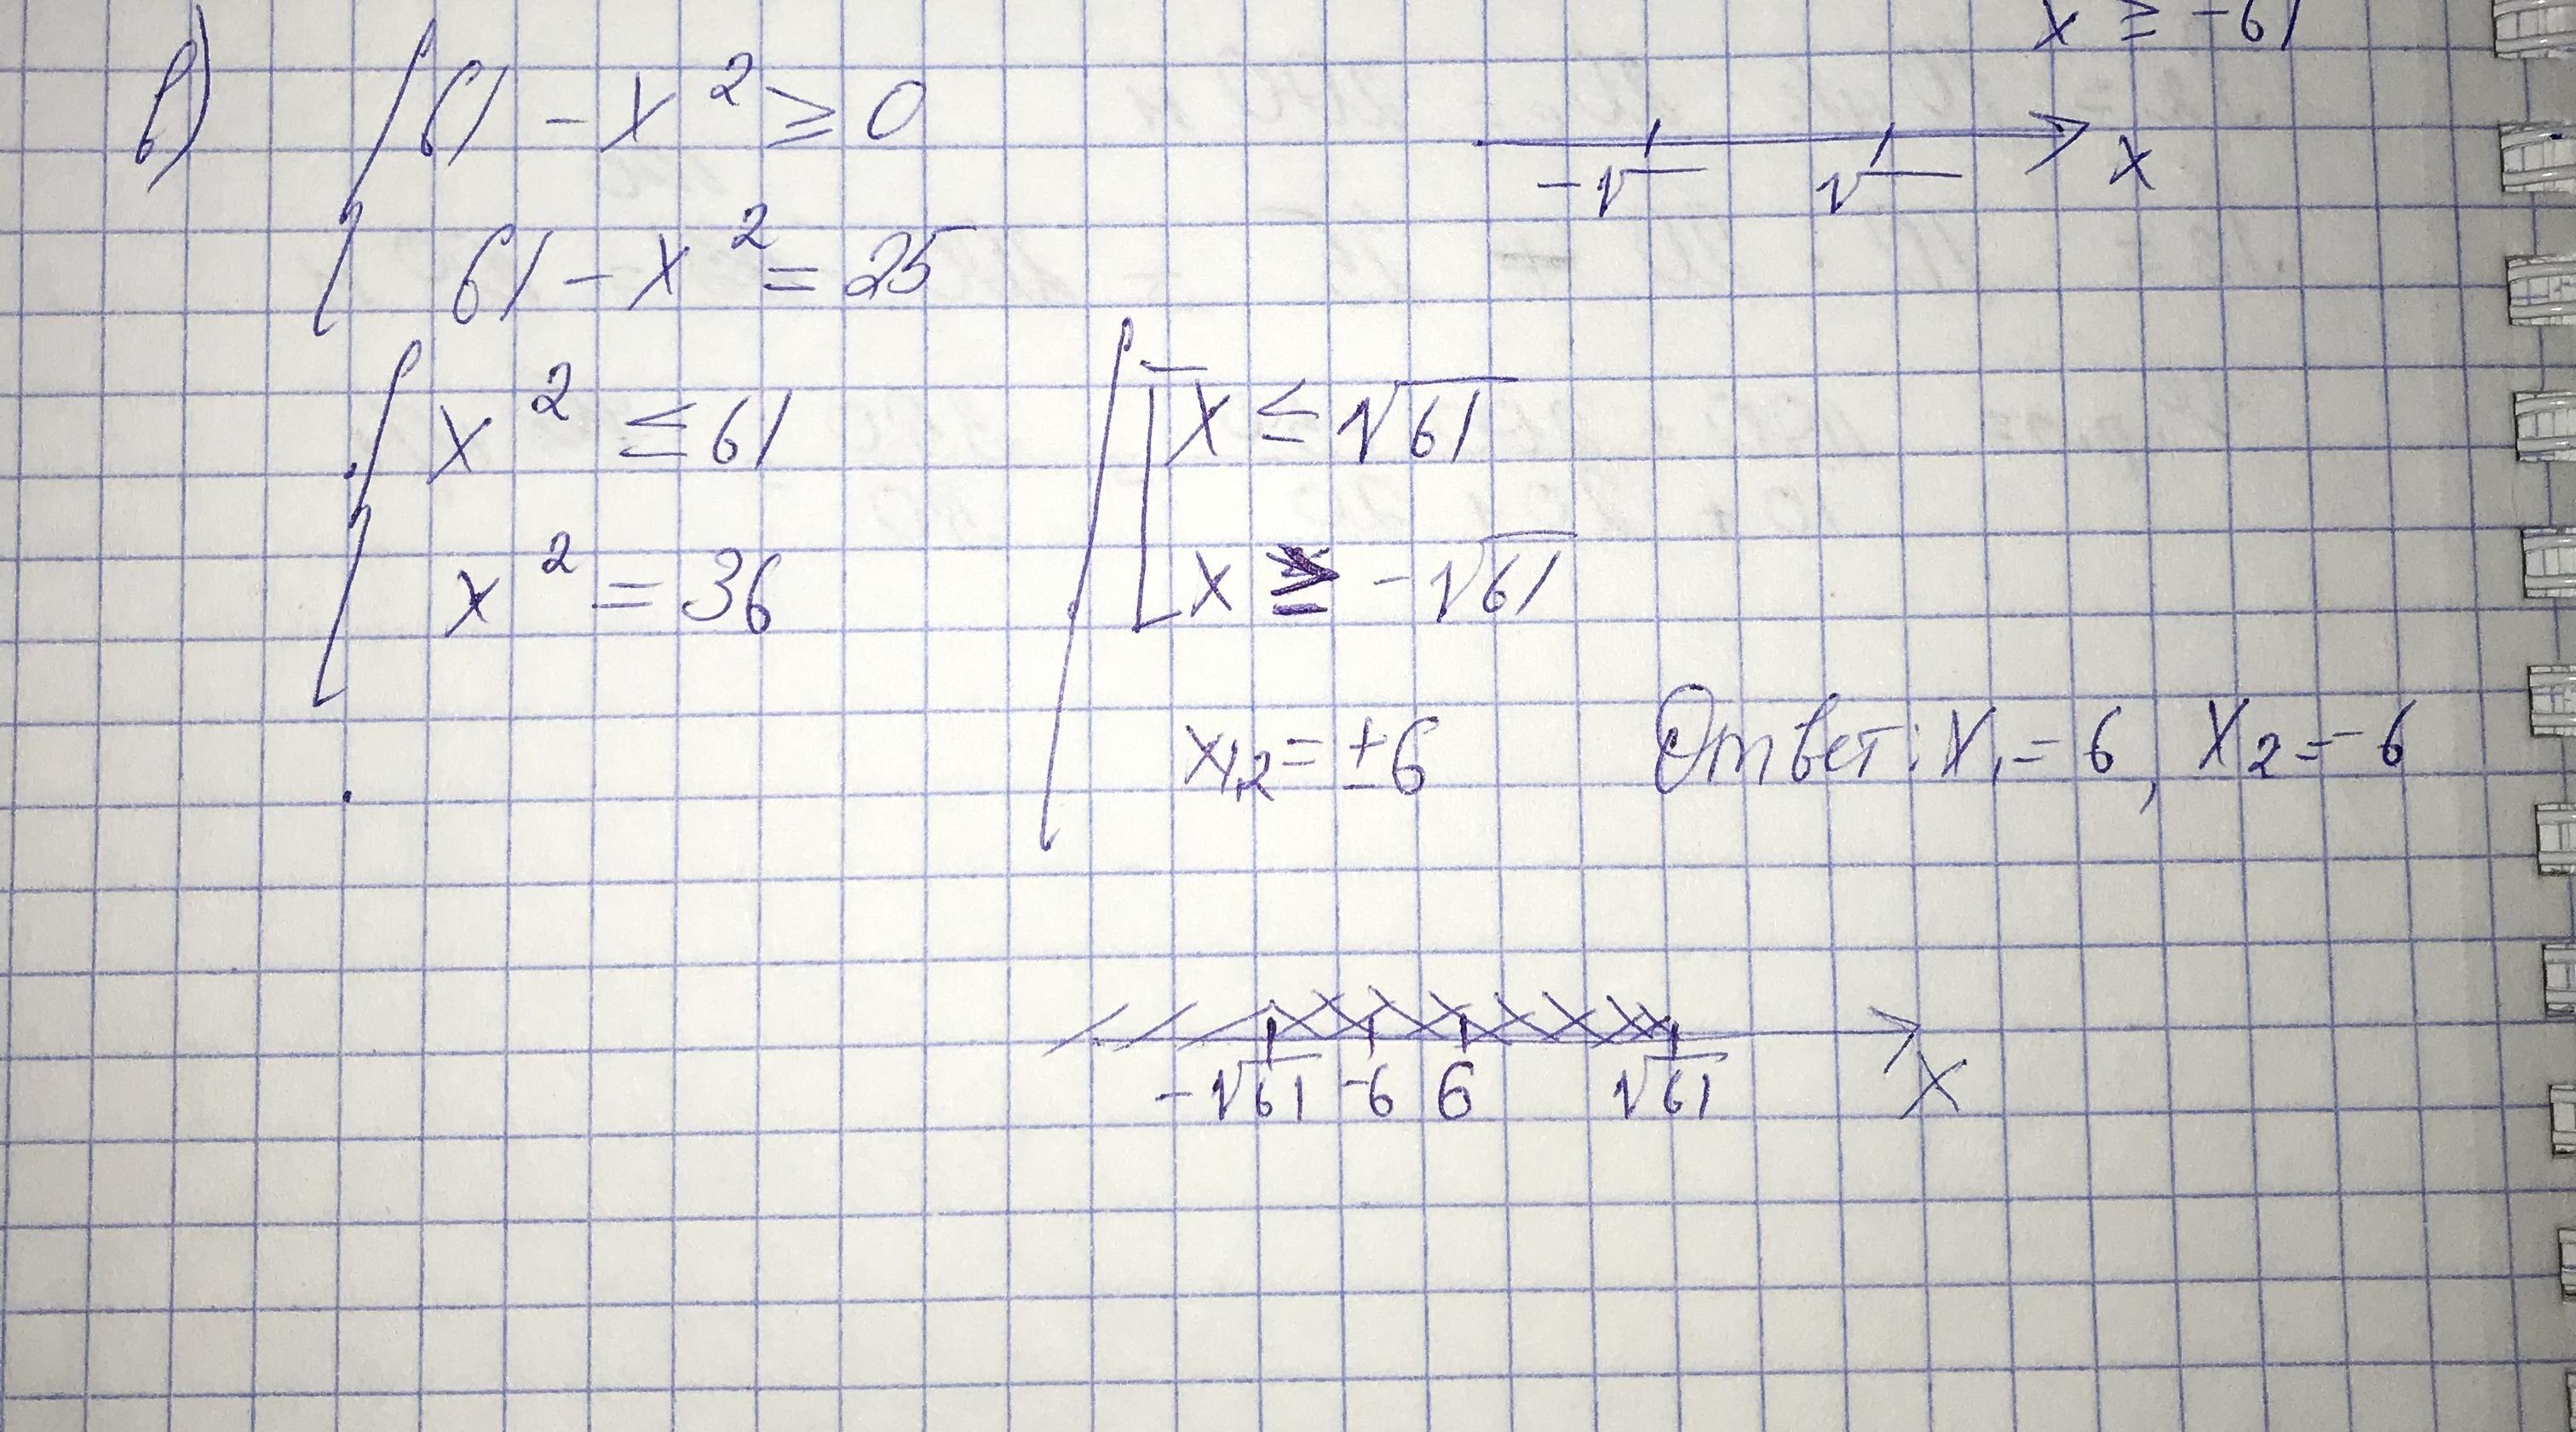 x ≥ -61
в) { 61 - x² ≥ 0
61 - x² = 25
-√ √ x
{ x² ≤ 61
x² = 36
{ [ x ≤ √61
x ≥ -√61
x₁,₂ = ±6 Ответ: x₁ = 6, x₂ = -6
-√61 -6 6 √61 x